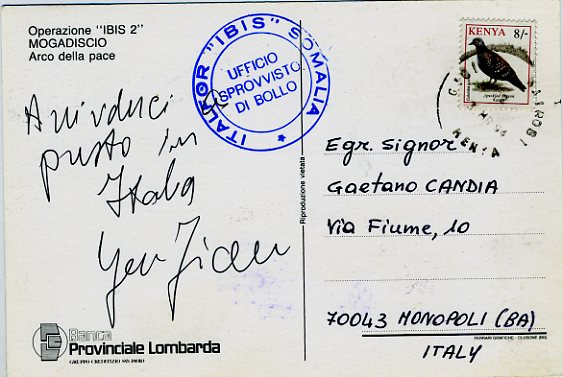 Operazione "IBIS 2"
MOGADISCIO
Arco della pace
ITALFOR "IBIS" SOMALIA
UFFICIO
SPROVVISTO
DI BOLLO
KENYA 8/-
KENYA
Arrivederci
presto in
Italia
Egr. Signor
Gaetano CANDIA
Via Fiume, 10
70043 MONOPOLI (BA)
ITALY
Riproduzione vietata
Banca
Provinciale Lombarda
GRUPPO CREDITIZIO SAN PAOLO
FERRARI GRAFICHE - CLUSONE (BG)